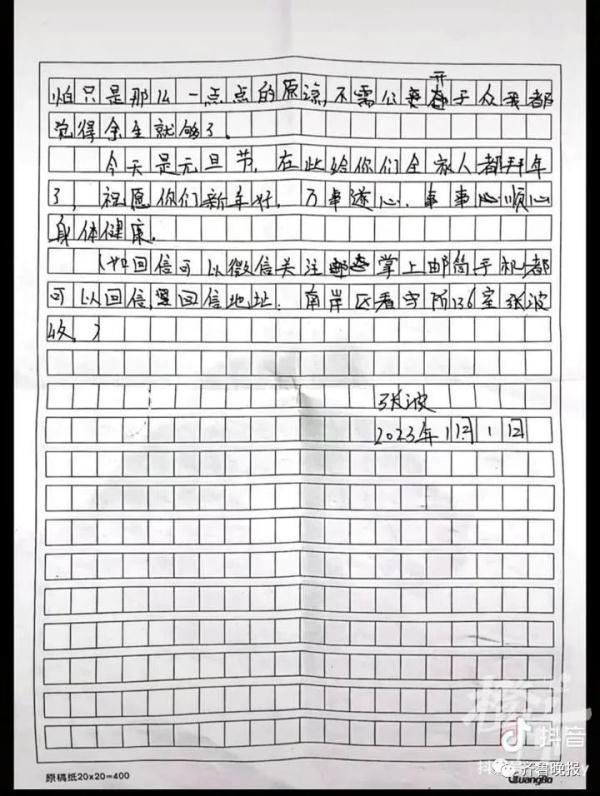 怕只是那么一点点的原谅,不需公开于众我都
觉得余生就够了.
今天是元旦节,在此给你们全家人都拜年
了,祝愿你们新年好,万事遂心,事事顺心
身体健康.
(如回信可以微信关注掌上邮筒手机都
可以回信,回信地址:南岸区看守所136室张波
收.)
张波
2023年1月1日
原稿纸20×20=400
GuangBo
抖音
齐鲁晚报